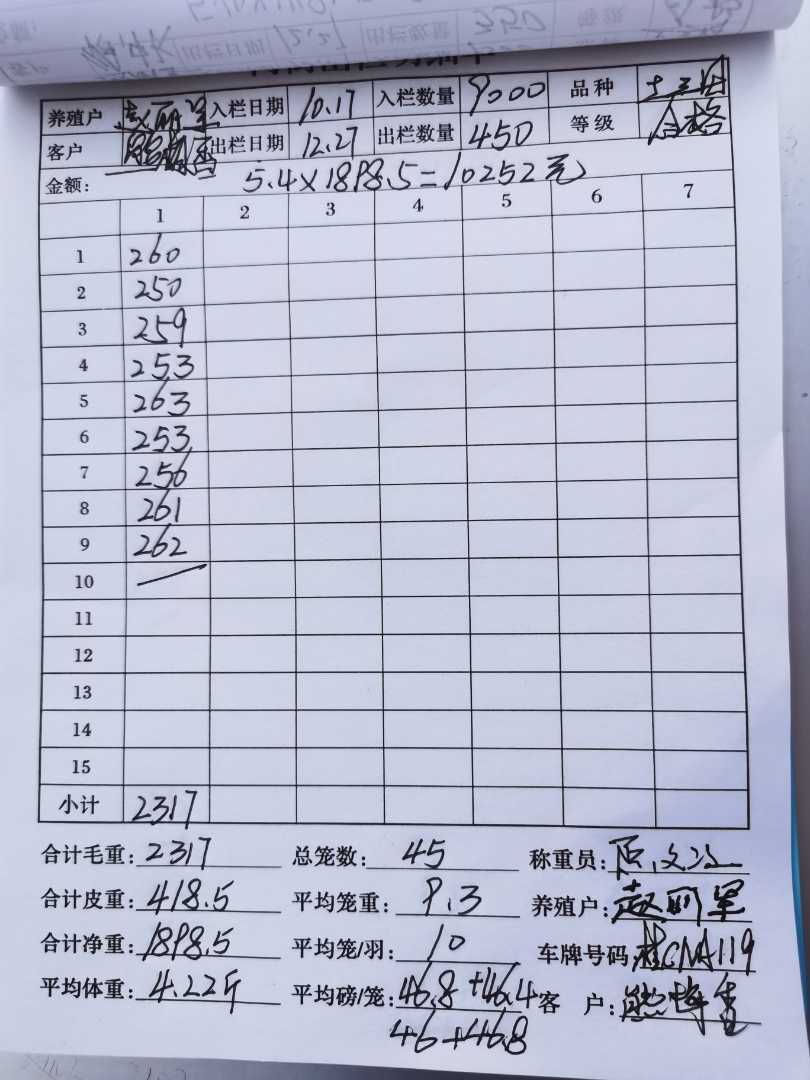 出栏日期 12.27 出栏数量 450 等级
养殖户 赵丽军 入栏日期 10.17 入栏数量 9000 品种 土三
客户 出栏日期 12.27 出栏数量 450 等级 合格
金额: 5.4×1898.5=10252元
1 2 3 4 5 6 7
1 260
2 250
3 259
4 253
5 263
6 253
7 256
8 261
9 262
10
11
12
13
14
15
小计 2317
合计毛重: 2317 总笼数: 45 称重员:
合计皮重: 418.5 平均笼重: 9.3 养殖户: 赵丽军
合计净重: 1898.5 平均笼/羽: 10 车牌号码: 桂CMA119
平均体重: 4.22斤 平均磅/笼: 46.8+46.4 客 户:
46+46.8